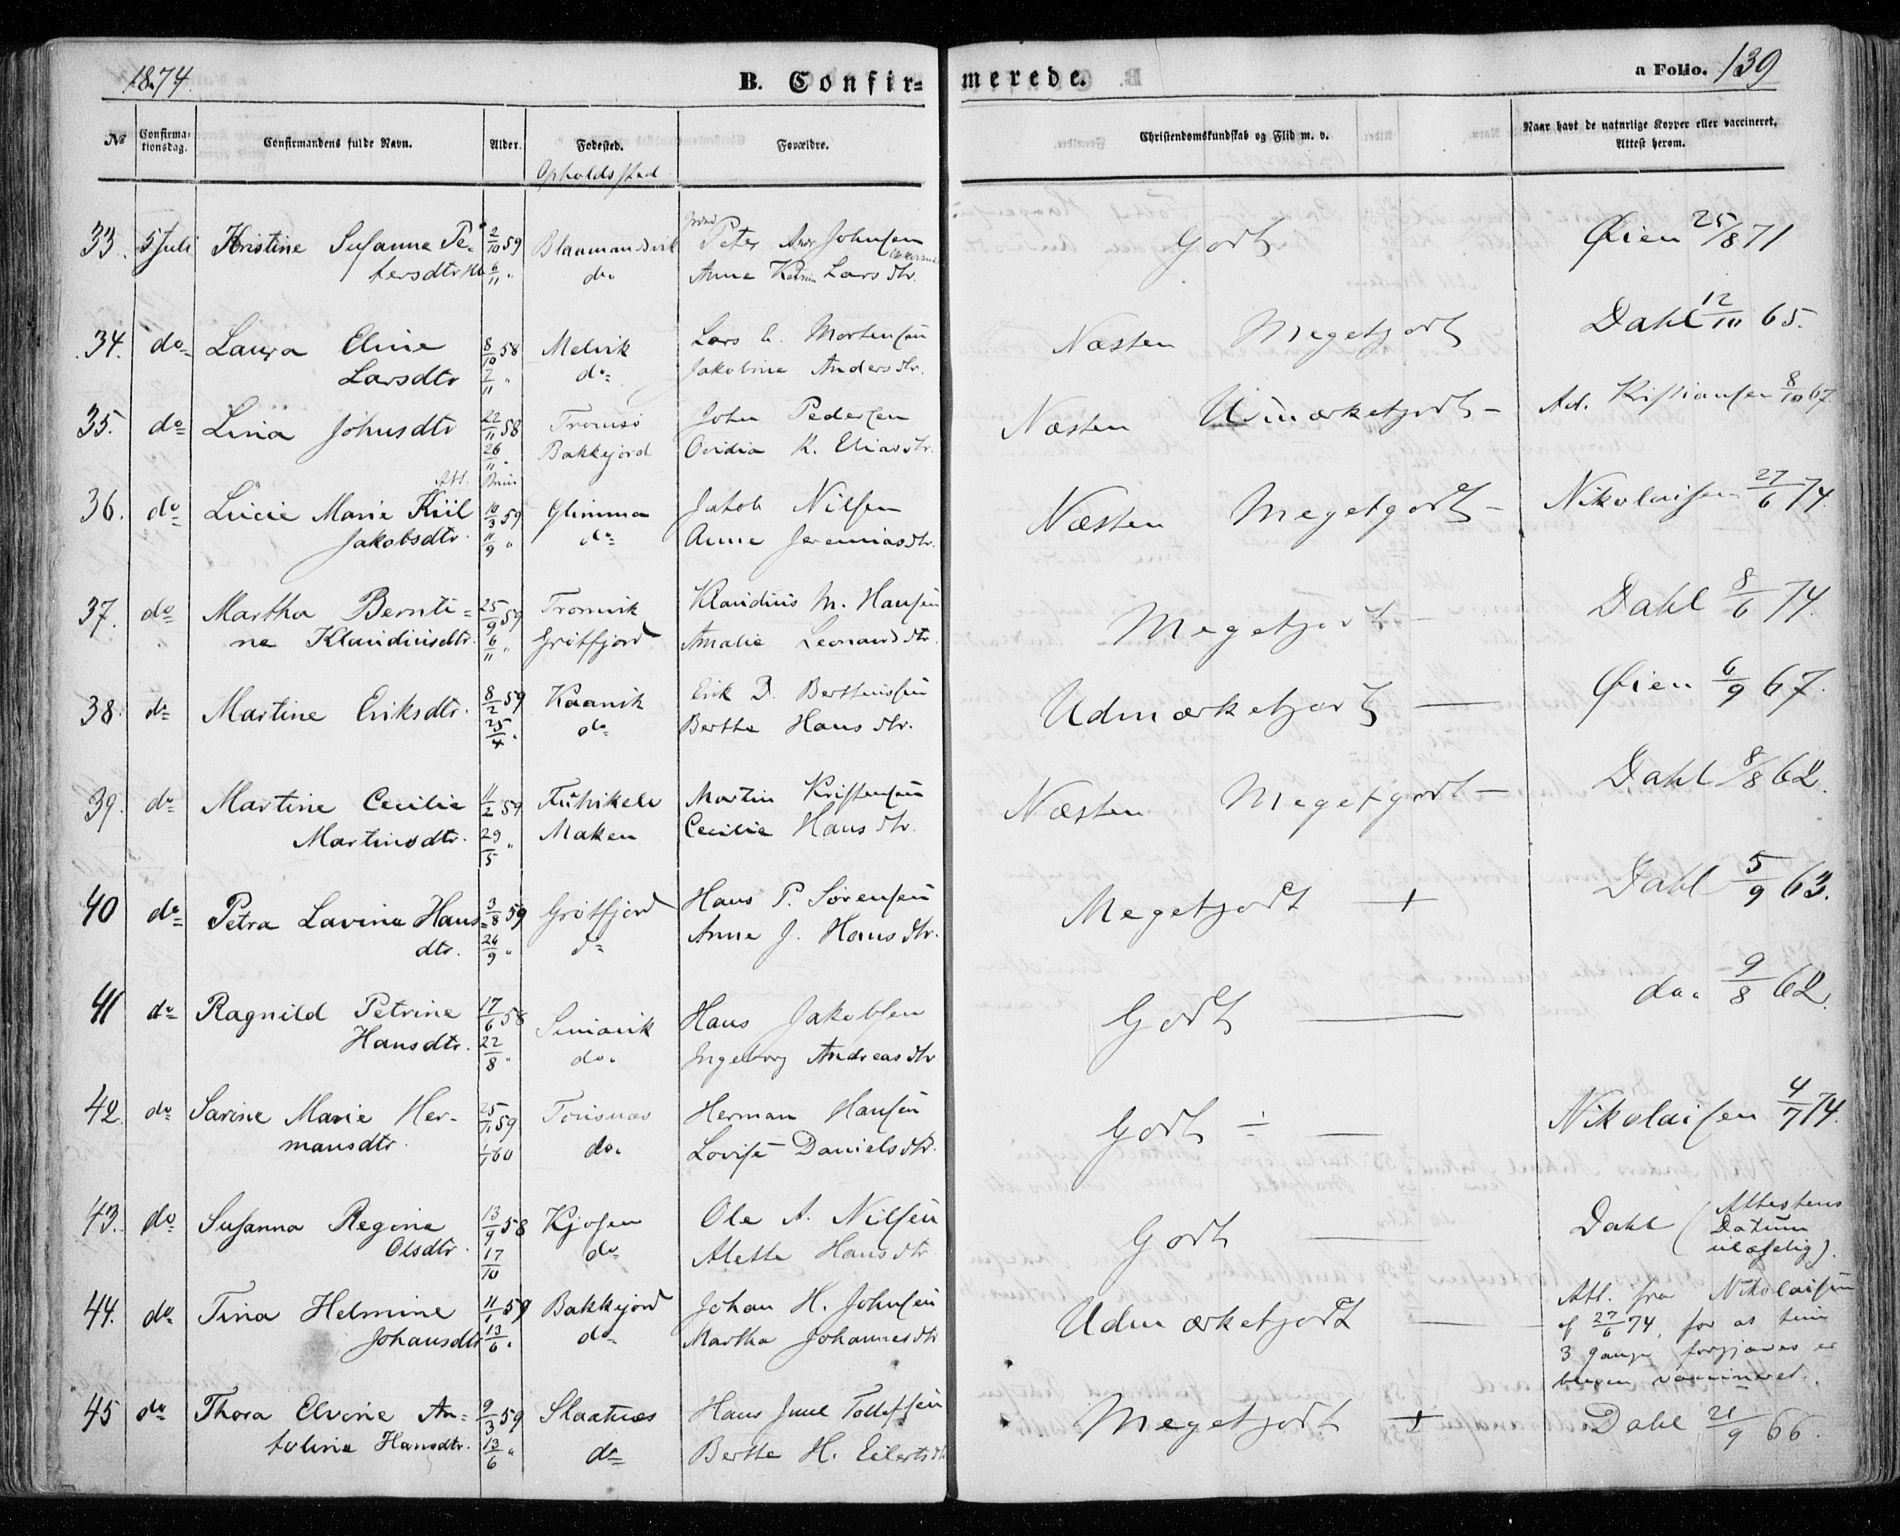 1874.
B. Confir- merede.
a Folio. 139
No Confirma-tionsdag. Confirmandens fulde Navn. Alder. Fødested. Forældre. Christendomskundskab og Flid m. v. Naar havt de naturlige Kopper eller vaccineret. Attest herom.
Opholdssted
33. 5 Juli Kristine Susanne Pe- 2/10 59 Peter Johnsen Godt Øien 25/8 71
tersdtr 6/11 " do. Anne Larsdtr.
34. do Laura Eline 8/10 58 Melvik Lars Mortensen Næsten Megetgodt Dahl 12/10 65.
Larsdtr 7/11 " do Jakobine Andersdtr.
35. do Lina Johnsdtr 22/11 58 Tromsø John Pedersen Næsten Udmærketgodt - Kristiansen 8/10 67.
26/11 " Bakkejord Ovidia K. Eliasdtr.
36. do Lucie Marie Kiil 10/3 59 Glimma Jakob Nilsen Næsten Megetgodt - Nikolaisen 27/6 74.
Jakobsdtr. 11/9 " do Anne Jeremiasdtr.
37. do Martha Bernti- 25/9 59 Tromvik Klaudius M. Hansen Megetgodt - Dahl 8/6 74.
ne Klaudiusdtr. 6/11 " Grötfjord Amalie Leonardsdtr.
38. do Martine Eriksdtr. 8/2 59 Kaavik Erik Berthiusen Udmærketgodt — Øien 6/9 67.
25/4 " do Berthe Hansdtr.
39. do Martine Cecilie 11/2 59 Martin Kristensen Næsten Megetgodt - Dahl 8/8 62.
Martinsdtr. 29/5 " Maken Cecilie Hansdtr.
40 do Petra Lavine Hans= 3/8 59 Grötfjord Hans P. Sørensen Megetgodt + Dahl 5/9 63.
dtr. 26/9 " do Anne J. Hansdtr.
41 do Ragnild Petrine 17/6 58 Simavik Hans Jakobsen Godt — do. 9/8 62.
Hansdtr. 22/8 " do. Ingeborg Andreasdtr
42 do Sarine Marie Her- 25/11 59 Tousnæs Herman Hansen Godt ÷ — Nikolaisen 4/7 74.
mansdtr. 1/1 60 do. Lovise Danielsdtr.
43. do Susanna Regine 13/9 58 Kjosen Ole A. Nilsen Godt — Dahl (Attestens
Olsdtr. 17/10 do Aletta Hansdtr Datum
ulæselig).
44. do Tina Helmine 11/1 59 Bakkejord Johan H. Johnsen Udmærketgodt — Att. fra Nikolaisen
Johansdtr 13/6 " do Martha Johannesdtr af 27/6 74, for at hun
3 Gange forgjæves er
bleven vaccineret.
45 do Thora Elvine An- 9/3 59 Slaatnæs Hans Juul Tollefsen Megetgodt + Dahl 21/9 66.
toline Hansdtr. 13/6 " do Berthe H. Eilertsdtr